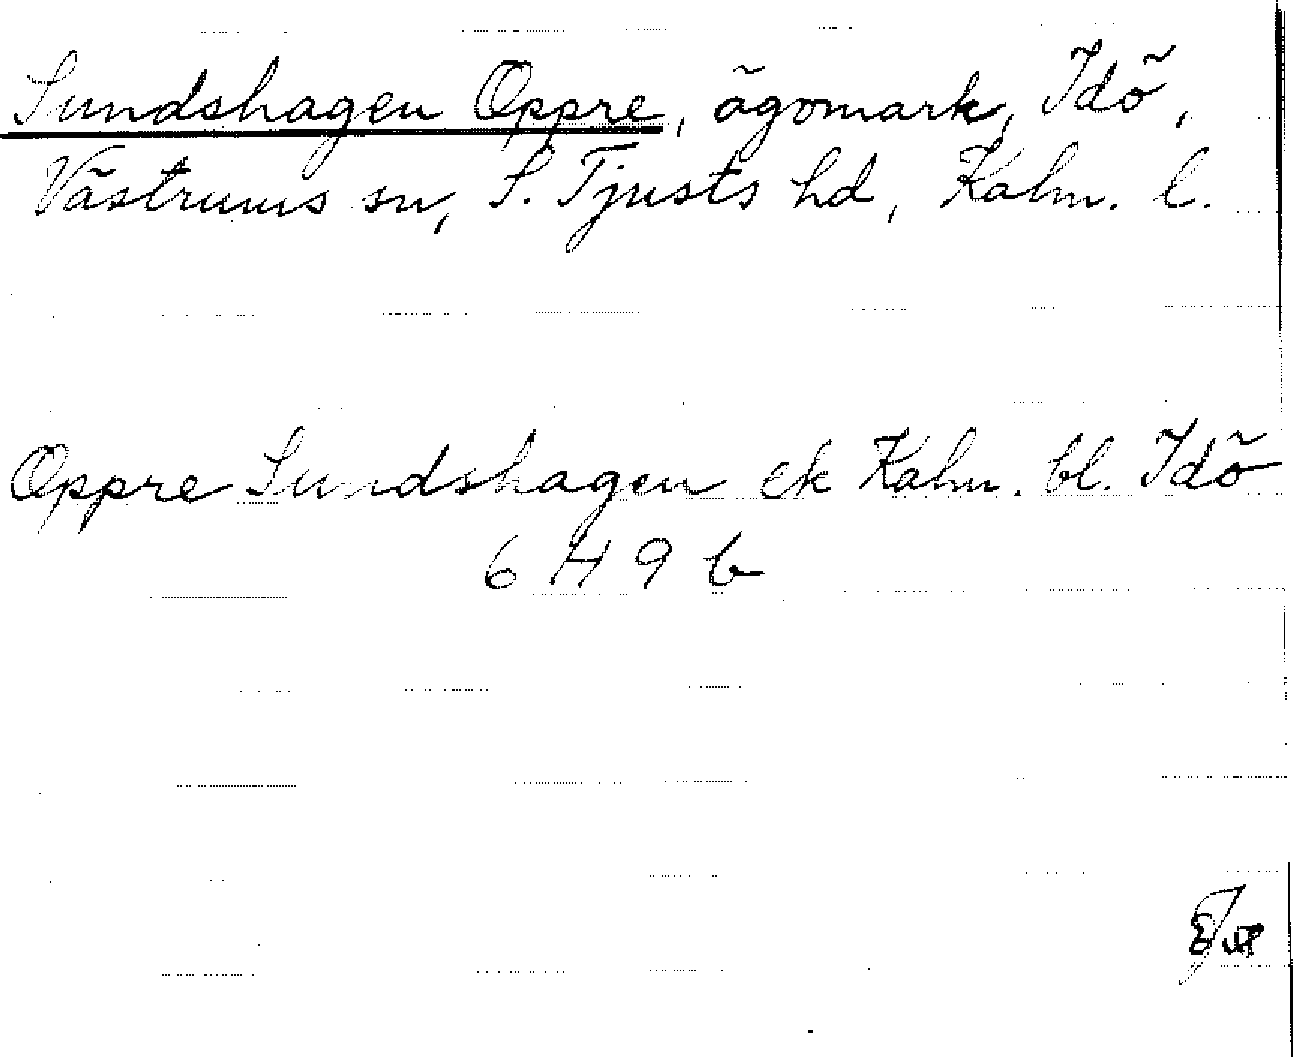 Sundshagen Oppre, ägomark, Idö,
Västrums sn, S. Tjusts hd, Kalm. l.
Oppre Sundshagen ek Kalm. bl. Idö
6 H 9 b